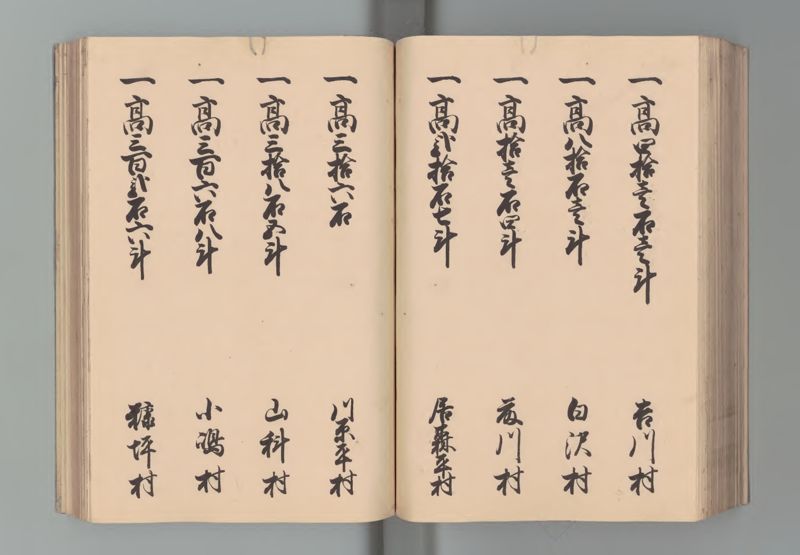 一高四拾壱石壱斗 吉川村
一高八拾石壱斗 白沢村
一高拾壱石四斗 荻川村
一高弐拾石七斗 居森平村
一高三拾六石 川原平村
一高三拾八石五斗 山科村
一高三百六石八斗 小嶋村
一高三百弐石六斗 糠坪村